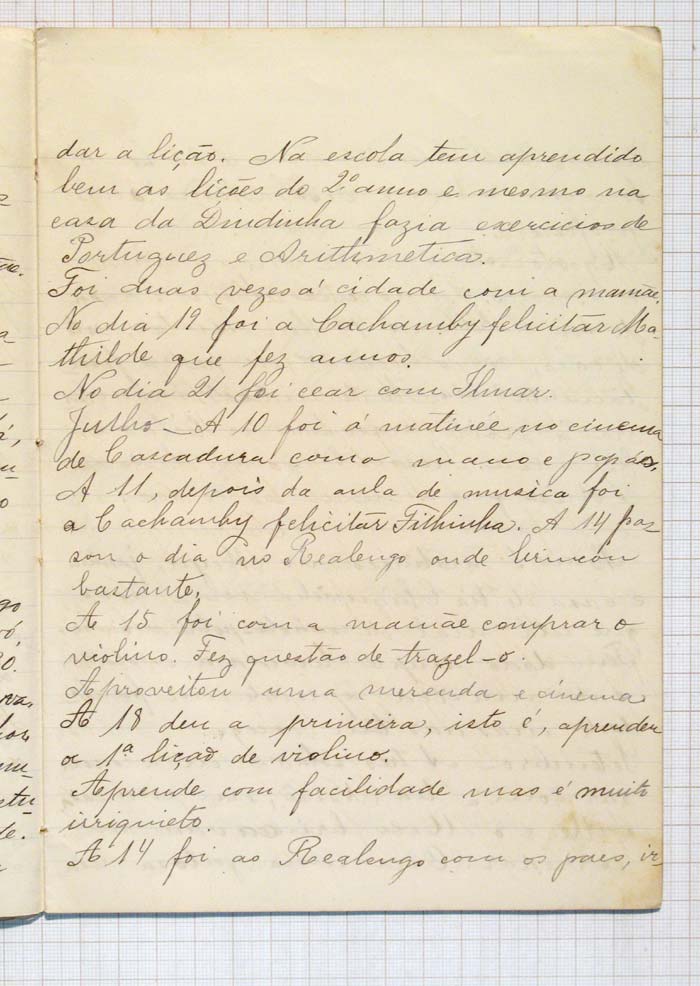 dar a lição. Na escola tem aprendido
bem as lições do 2º anno e mesmo na
casa da Dindinha fazia exercicios de
Portuguez e Arithmetica.
Foi duas vezes á cidade com a mamãe.
No dia 19 foi a Cachamby felicitar Ma-
thilde que fez annos.
No dia 21 foi cear com Ilmar.
Julho – A 10 foi á matinée no cinema
de Cascadura com o mano e papáe.
A 11, depois da aula de musica foi
a Cachamby felicitar Filhinha. A 14 pas-
sou o dia no Realengo onde brincou
bastante.
A 15 foi com a mamãe comprar o
violino. Fez questão de trazel-o.
Aproveitou uma merenda e cinema
A 18 deu a primeira, isto é, aprender
a 1ª lição de violino.
Aprende com facilidade mas é muito
irriquieto.
A 14 foi ao Realengo com os paes, ir-